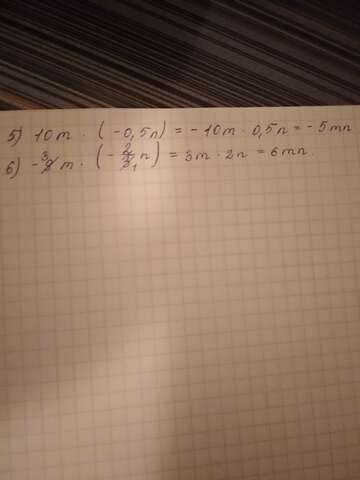 5) 10m · (-0,5n) = - 10m · 0,5n = - 5mn
6) - 9³m · (- 2/3₁ n) = 3m · 2n = 6mn.